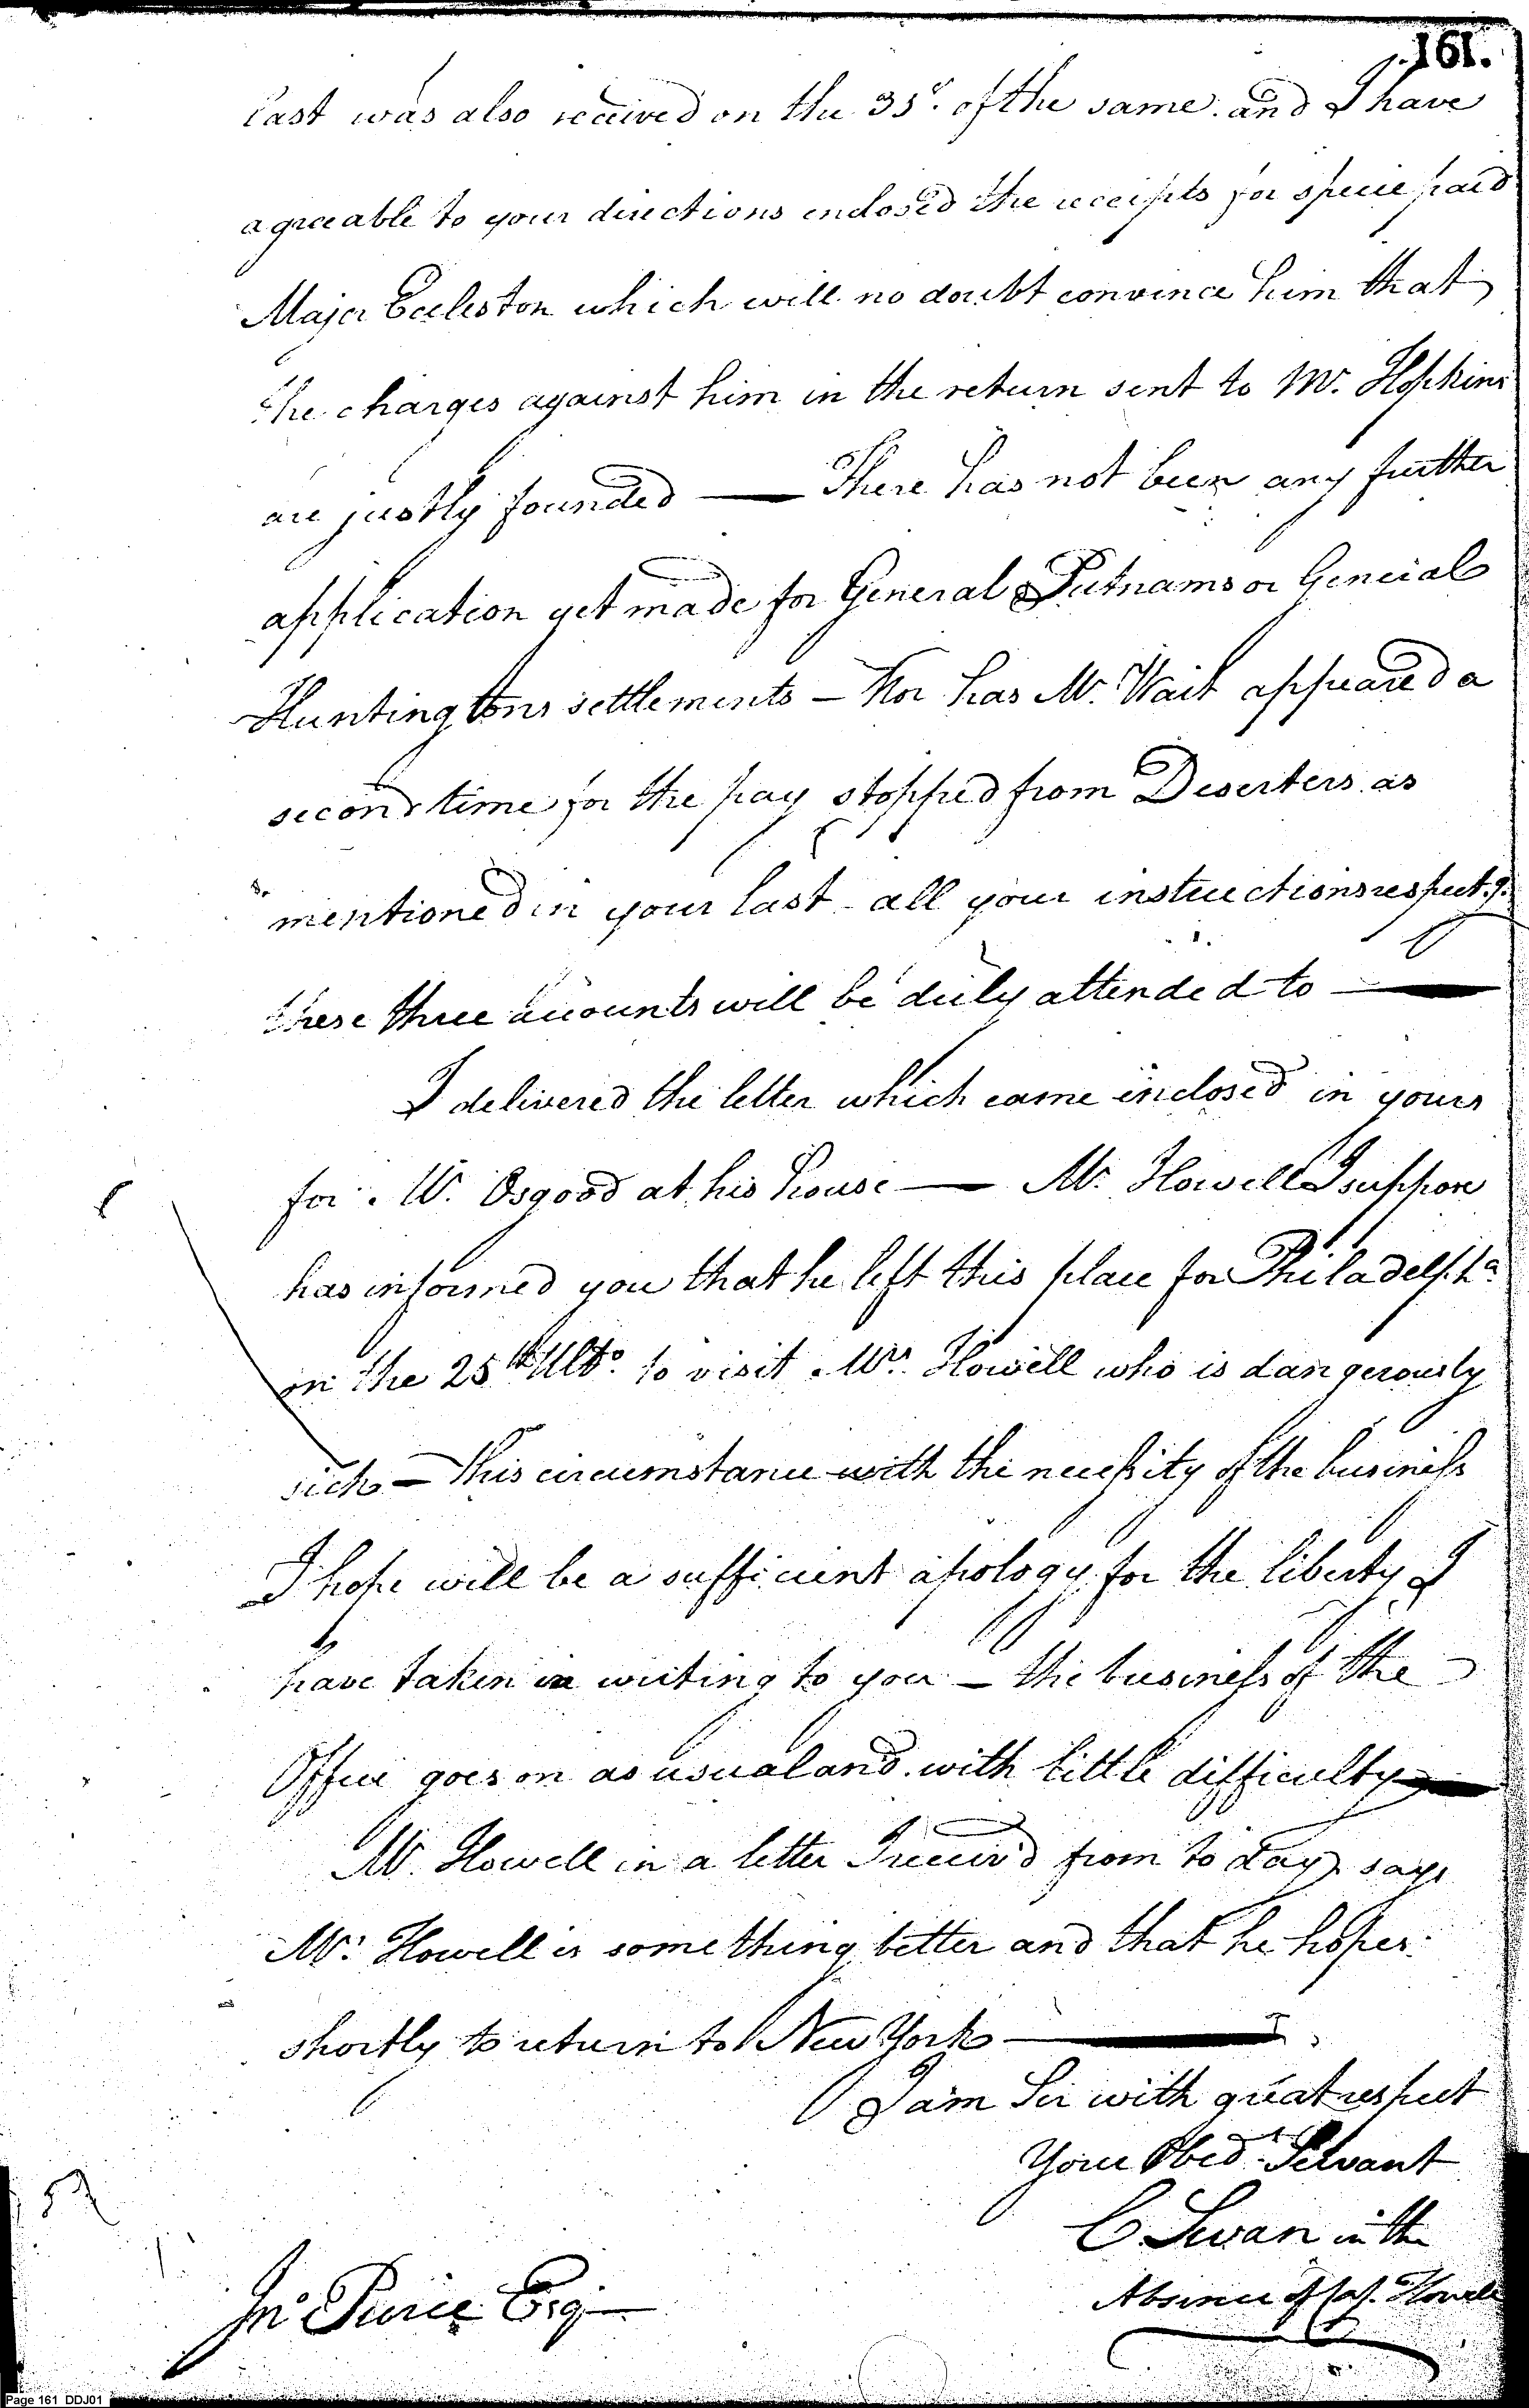 161.
last was also received on the 3d. of the same. and I have
agreeable to your directions enclosed the receipts for specie paid
Major Eccleston which will no doubt convince him that
the charges against him in the return sent to Mr. Hopkins
are justly founded — There has not been any further
application yet made for General Putnams or General
Huntingtons settlements — Nor has Mr. Wait appeared a
second time for the pay stopped from Deserters as
mentioned in your last - all your instructions respect.g.
these three accounts will be duly attended to —
I delivered the letter which came inclosed in yours
for Mr. Osgood at his house — Mr. Howell I suppose
has informed you that he left this place for Philadelpha
on the 25th Ulto. to visit Mrs. Howell who is dangerously
sick — This circumstance with the necessity of the business
I hope will be a sufficient apology for the liberty I
have taken in writing to you — the business of the
Office goes on as usual and with little difficulty —
Mr. Howell in a letter I receiv'd from to day says
Mrs. Howell is something better and that he hopes
shortly to return to New York —
I am Sir with great respect
Your Obed. Servant
C. Swan in the
Absence of Cap. Howell
Jno Pierce Esq —
Page 161 DDJ01